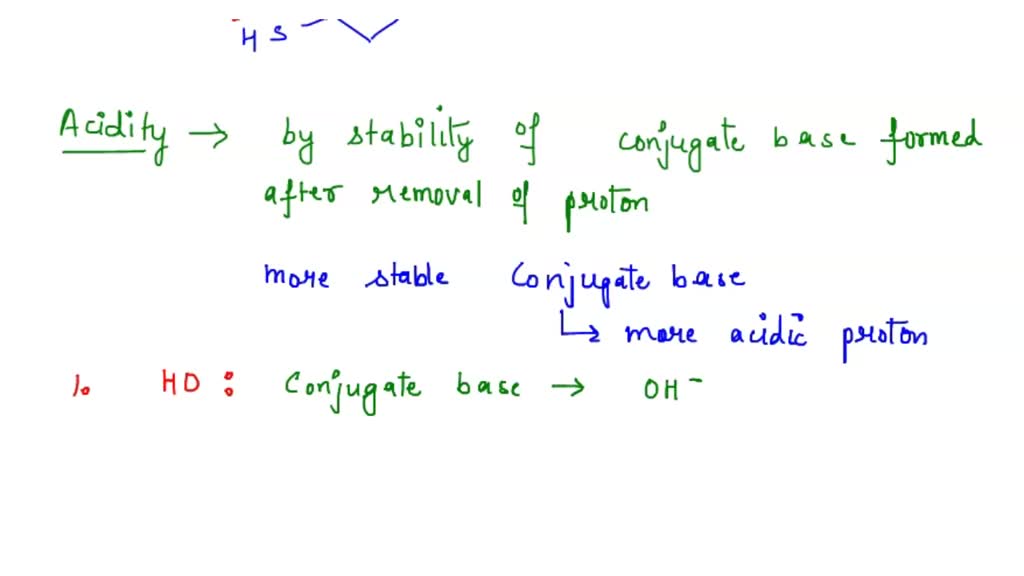 HS
Acidity → by stability of conjugate base formed
after removal of proton
more stable Conjugate base
↳ more acidic proton
1. HO : Conjugate base → OH⁻